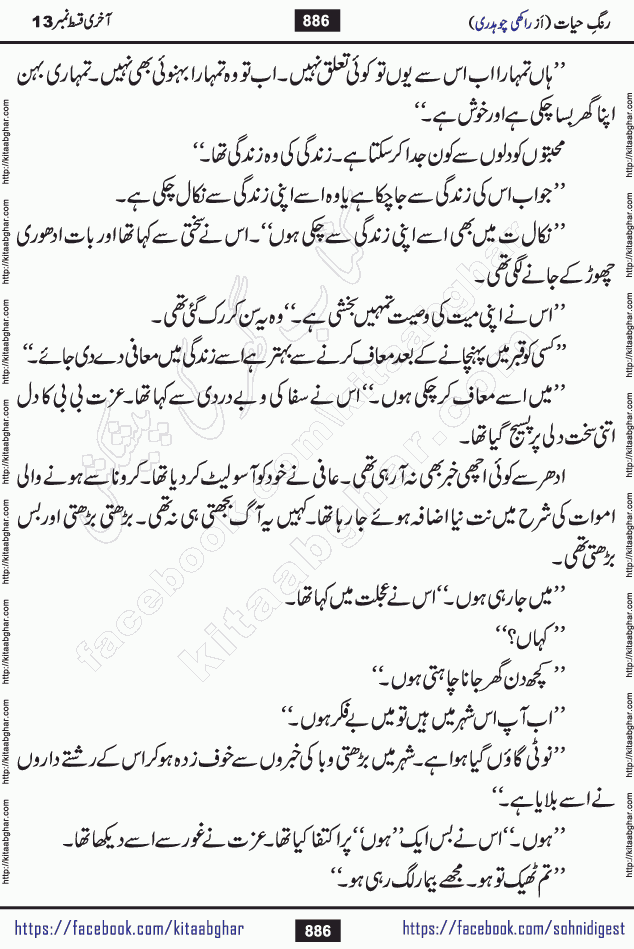 رنگِ حیات (از راکھی چوہدری)
886
آخری قسط نمبر 13
’’ہاں تمہارا اب اس سے یوں تو کوئی تعلق نہیں۔ اب تو وہ تمہارا بہنوئی بھی نہیں۔ تمہاری بہن
اپنا گھر بسا چکی ہے اور خوش ہے۔‘‘
محبتوں کو دلوں سے کون جدا کر سکتا ہے۔ زندگی کی وہ زندگی تھا۔‘‘
’’جو اب اس کی زندگی سے جا چکا ہے یا وہ اسے اپنی زندگی سے نکال چکی ہے۔
’’نکال ت میں بھی اسے اپنی زندگی سے چکی ہوں‘‘۔ اس نے سختی سے کہا تھا اور بات ادھوری
چھوڑ کے جانے لگی تھی۔
’’اس نے اپنی میت کی وصیت تمہیں بخشی ہے۔‘‘ وہ یہ سن کر رک گئی تھی۔
’’کسی کو قبر میں پہنچانے کے بعد معاف کرنے سے بہتر ہے اسے زندگی میں معافی دے دی جائے۔‘‘
’’میں اسے معاف کر چکی ہوں۔‘‘ اس نے سفاکی و بے دردی سے کہا تھا۔ عزت بی بی کا دل
اتنی سخت دلی پر پسیج گیا تھا۔
ادھر سے کوئی اچھی خبر بھی نہ آ رہی تھی۔ عافی نے خود کو آسولیٹ کر دیا تھا۔ کرونا سے ہونے والی
اموات کی شرح میں نت نیا اضافہ ہوئے جا رہا تھا۔ کہیں یہ آگ بجھتی ہی نہ تھی۔ بڑھتی بڑھتی اور بس
بڑھتی تھی۔
’’میں جا رہی ہوں۔‘‘ اس نے عجلت میں کہا تھا۔
’’کہاں؟‘‘
’’کچھ دن گھر جانا چاہتی ہوں۔‘‘
’’اب آپ اس شہر میں ہیں تو میں بے فکر ہوں۔‘‘
’’نوٹی گاؤں گیا ہوا ہے۔ شہر میں بڑھتی وبا کی خبروں سے خوف زدہ ہو کر اس کے رشتے داروں
نے اسے بلایا ہے۔‘‘
’’ہوں۔‘‘ اس نے بس ایک ’’ہوں‘‘ پر اکتفا کیا تھا۔ عزت نے غور سے اسے دیکھا تھا۔
’’تم ٹھیک تو ہو۔ مجھے بیمار لگ رہی ہو۔‘‘
http://kitaabghar.com
کتاب گھر کی پیشکش
kitaabghar.com
facebook.com/kitaabghar
https://facebook.com/kitaabghar
886
https://facebook.com/sohnidigest